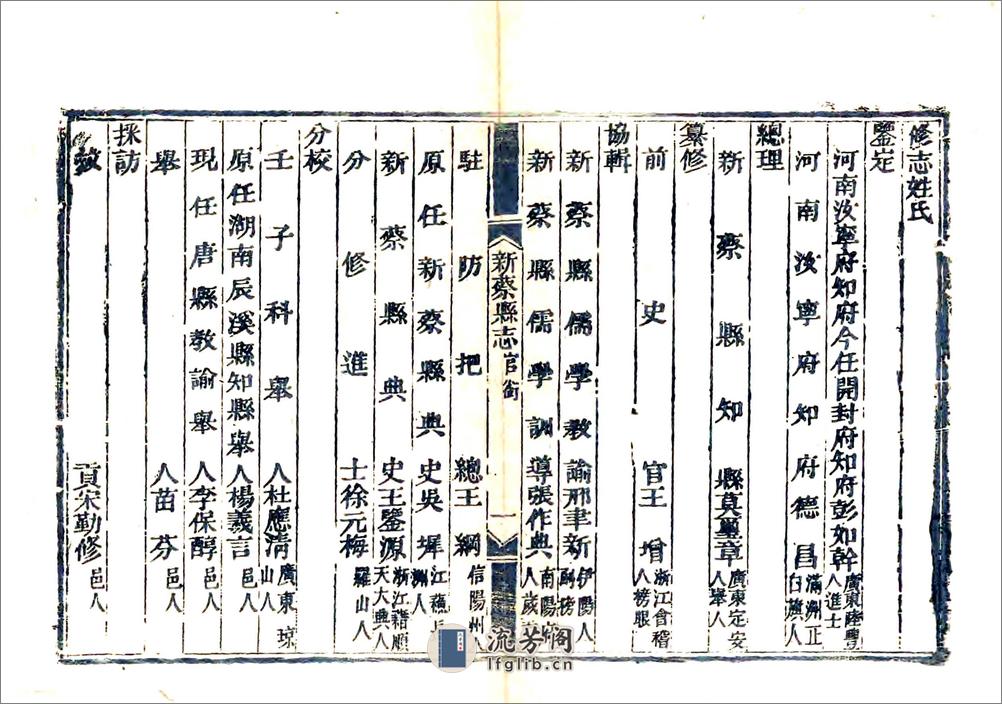 修志姓氏
鑒定
河南汝寧府知府今任開封府知府彭如幹廣東陸豐人進士
河南汝寧府知府德昌滿洲正白旗人
總理
新蔡縣知縣莫璽章廣東定安人舉人
纂修
前史官王增浙江會稽人榜眼
協輯
新蔡縣儒學教諭邢聿新伊陽人
新蔡縣儒學訓導張作典南陽人歲
新蔡縣志官銜一
駐防把總王綱信陽州人
原任新蔡縣典史吳墀江蘇人
新蔡縣典史王鑒源浙江籍順天大興人
分修進士徐元梅羅山人
分校
壬子科舉人杜應清廣東瓊山人
原任湖南辰溪縣知縣舉人楊義言邑人
現任唐縣教諭舉人李保醇邑人
舉人苗芬邑人
採訪
貢宋勤修邑人
流芳阁
lfglib.cn